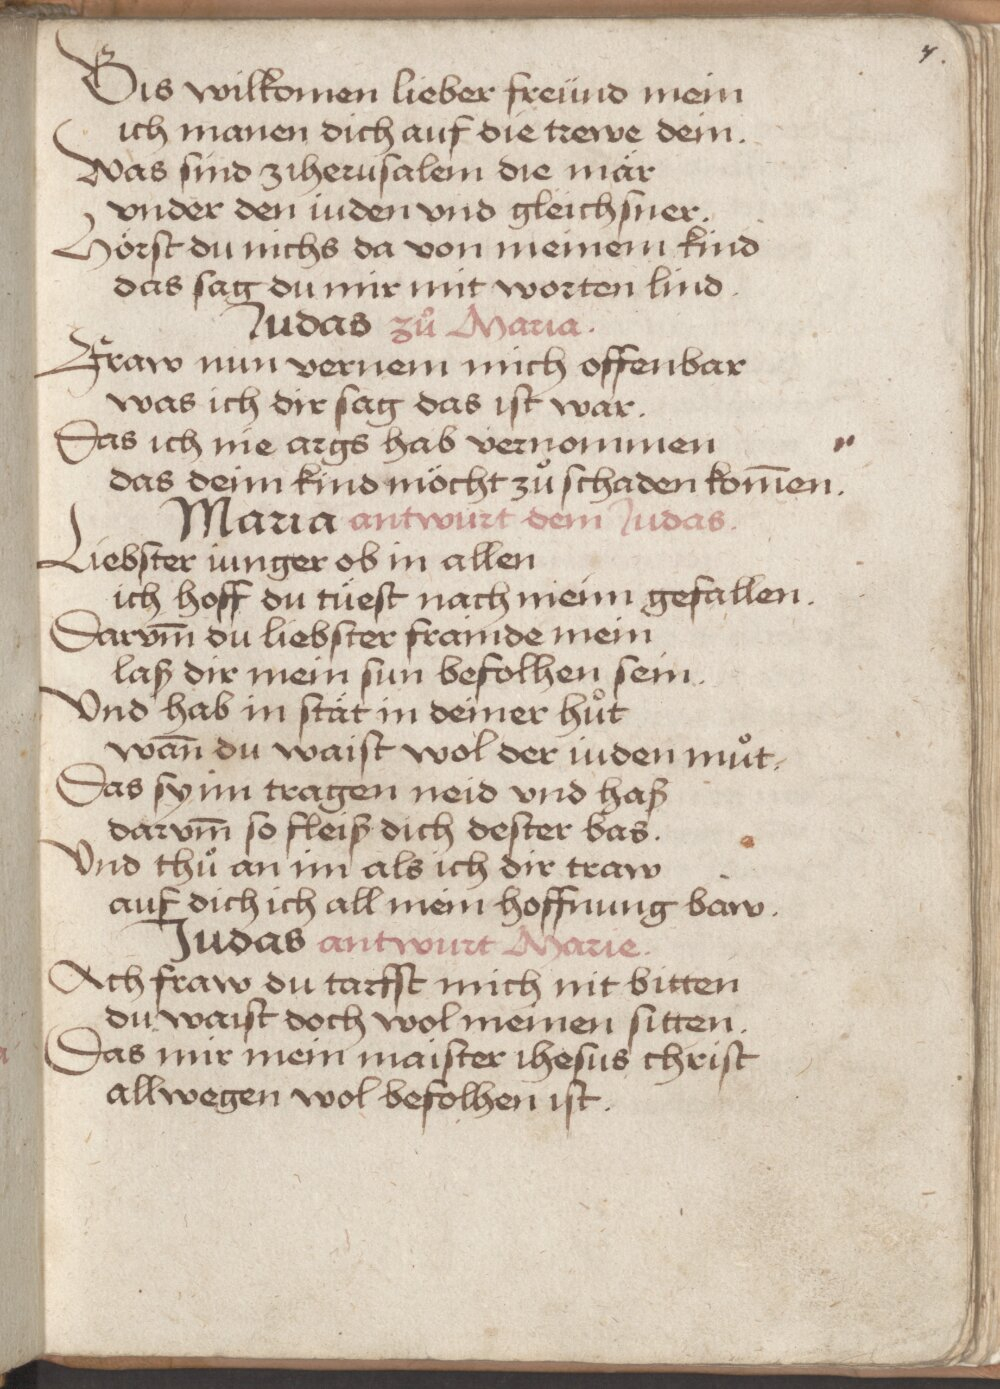 7.
Bis wilkomen lieber freünd mein
ich manen dich auf die trewe dein.
Was sind zihеrusalem die mär
vnder den iuden vnd gleichsner.
Hörst du nichs da von meinem kind
das sag du mir mit worten lind.
Judas zuͦ Maria.
Fraw nun vernem mich offenbar
was ich dir sag das ist war.
Das ich nie args hab vernommen
das deim kind möcht zuͦ schaden kom̅en.
Maria antwurt dem Judas.
Liebster iunger ob in allen
ich hoff du tüest nach meim gefallen.
Darvm̅ du liebster frainde mein
laß dir mein sun befolhen sein.
Vnd hab in stät in deiner huͦt
wan̅ du waist wol der iuden muͦt.
Das sy im tragen neid vnd haß
darvm̅ so fleiß dich dester bas.
Vnd thuͦ an im als ich dir traw
auf dich ich all mein hoffnung baw.
Judas antwurt Marie.
Ach fraw du tarfst mich nit bitten
du waist doch wol meinen sitten.
Das mir mein maister ihesus christ
allwegen wol befolhen ist.